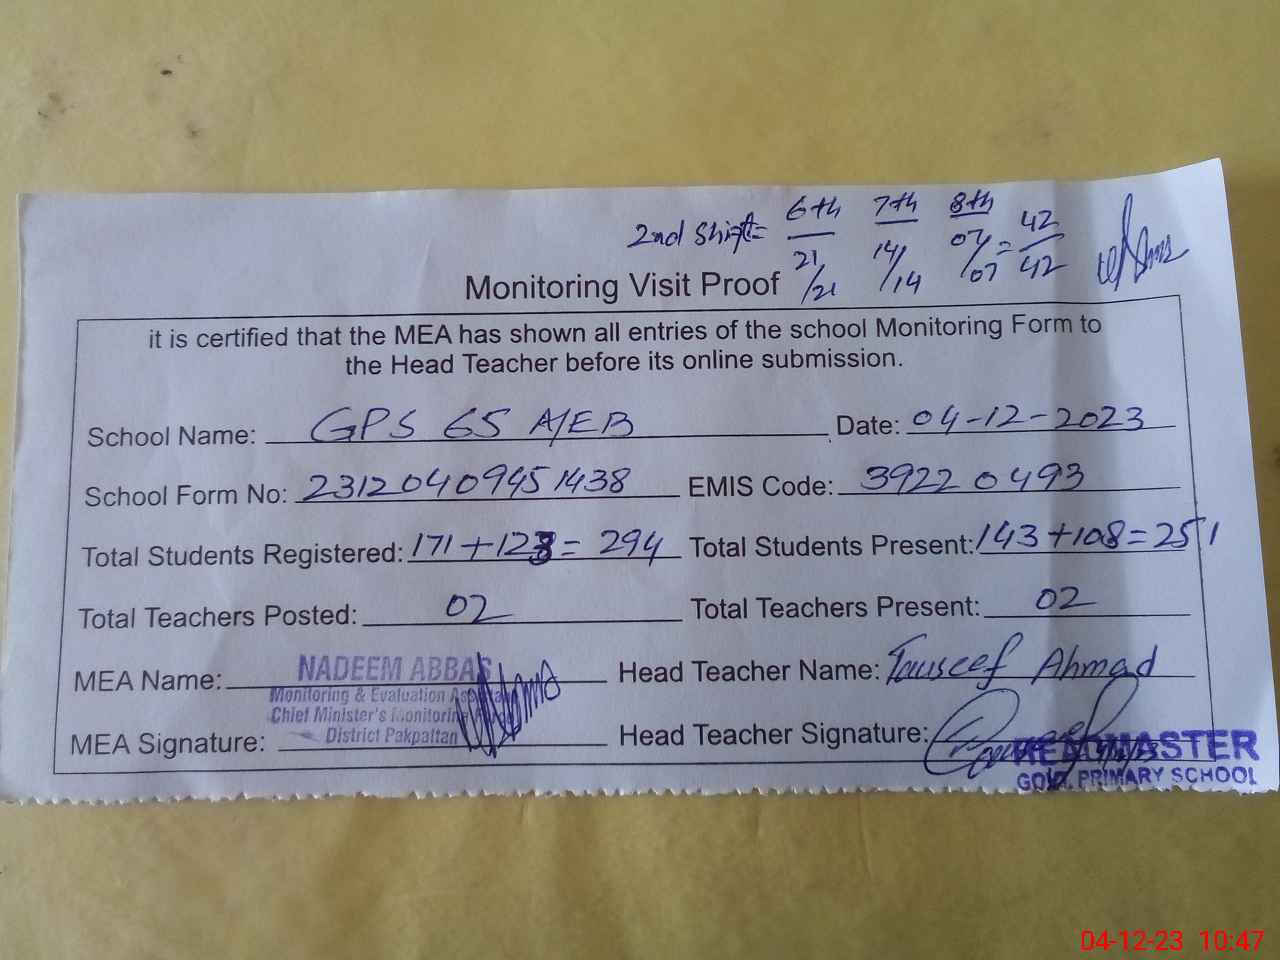 2nd Shift= 6th 7th 8th
21/21 14/14 07/07 = 42/42
Monitoring Visit Proof
it is certified that the MEA has shown all entries of the school Monitoring Form to
the Head Teacher before its online submission.
School Name: GPS 65 A/EB Date: 04-12-2023
School Form No: 23120409451438 EMIS Code: 39220493
Total Students Registered: 171+123= 294 Total Students Present: 143+108=251
Total Teachers Posted: 02 Total Teachers Present: 02
MEA Name: NADEEM ABBAS Head Teacher Name: Touseef Ahmad
Monitoring & Evaluation Assistant
Chief Minister's Monitoring
District Pakpattan
MEA Signature: Head Teacher Signature:
HEADMASTER
GOVT. PRIMARY SCHOOL
04-12-23 10:47